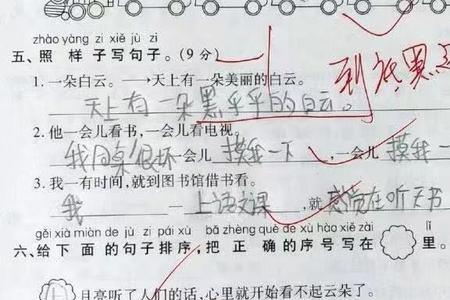 zhào yàng zi xiě jù zi
五、照 样 子 写 句 子。(9 分)
1. 一朵白云。⟶天上有一朵美丽的白云。
天上有一朵黑乎乎的白云。
到底黑
2. 他一会儿看书，一会儿看电视。
我同桌很坏一会儿 摸我一下 ，一会儿 摸我一
3. 我一有时间，就到图书馆借书看。
我 一 上语文课 ，就 感觉在听天书
gěi xià miàn de jù zi pái xù bǎ zhèng què de xù hào xiě zài lǐ
六、给 下 面 的 句 子 排 序，把 正 确 的 序 号 写 在 里。
月亮听了人们的话，心里就开始看不起云朵了。